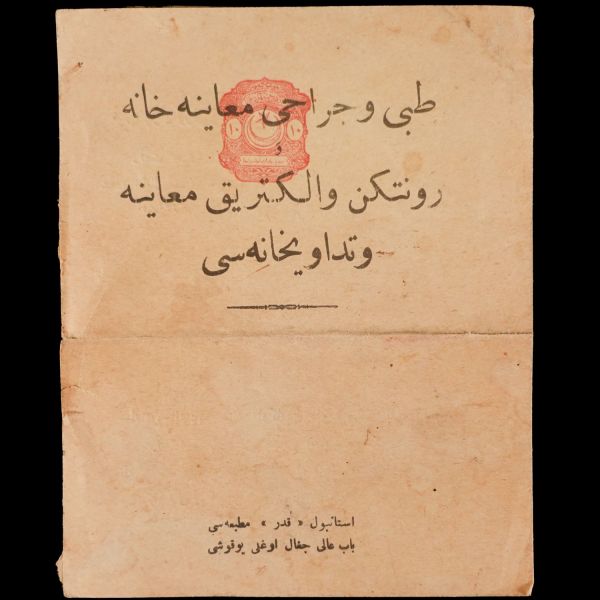 طبی و جراحی معاینه خانه
و
رونتکن والکتریق معاینه
وتداویخانه‌سی
١٠ ١٠
استانبول « قدر » مطبعه‌سی
باب عالی جغال اوغلی یوقوشی